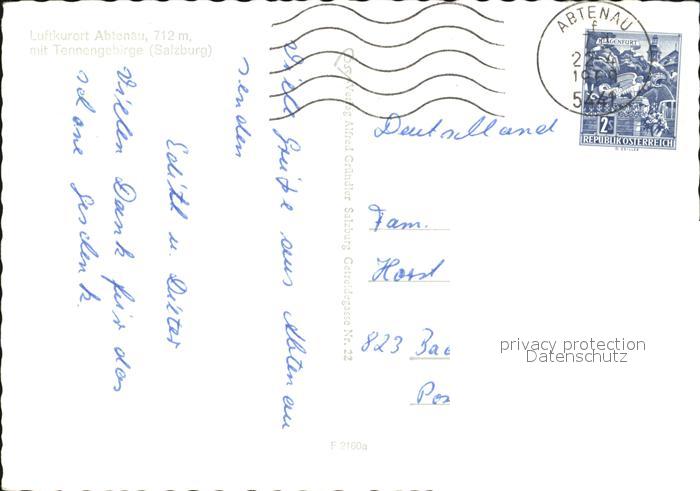 Luftkurort Abtenau, 712 m,
mit Tennengebirge (Salzburg)
Viele Grüße aus Abtenau
senden
Edith u. Dieter
Vielen Dank für das
schöne Geschenk.
Verlag Alfred Gründler Salzburg Getreidegasse Nr. 22
F 2160a
ABTENAU
f
5441
KLAGENFURT
2 S
REPUBLIK ÖSTERREICH
Deutschland
Fam.
Horst
823 Bad
Pos
privacy protection
Datenschutz